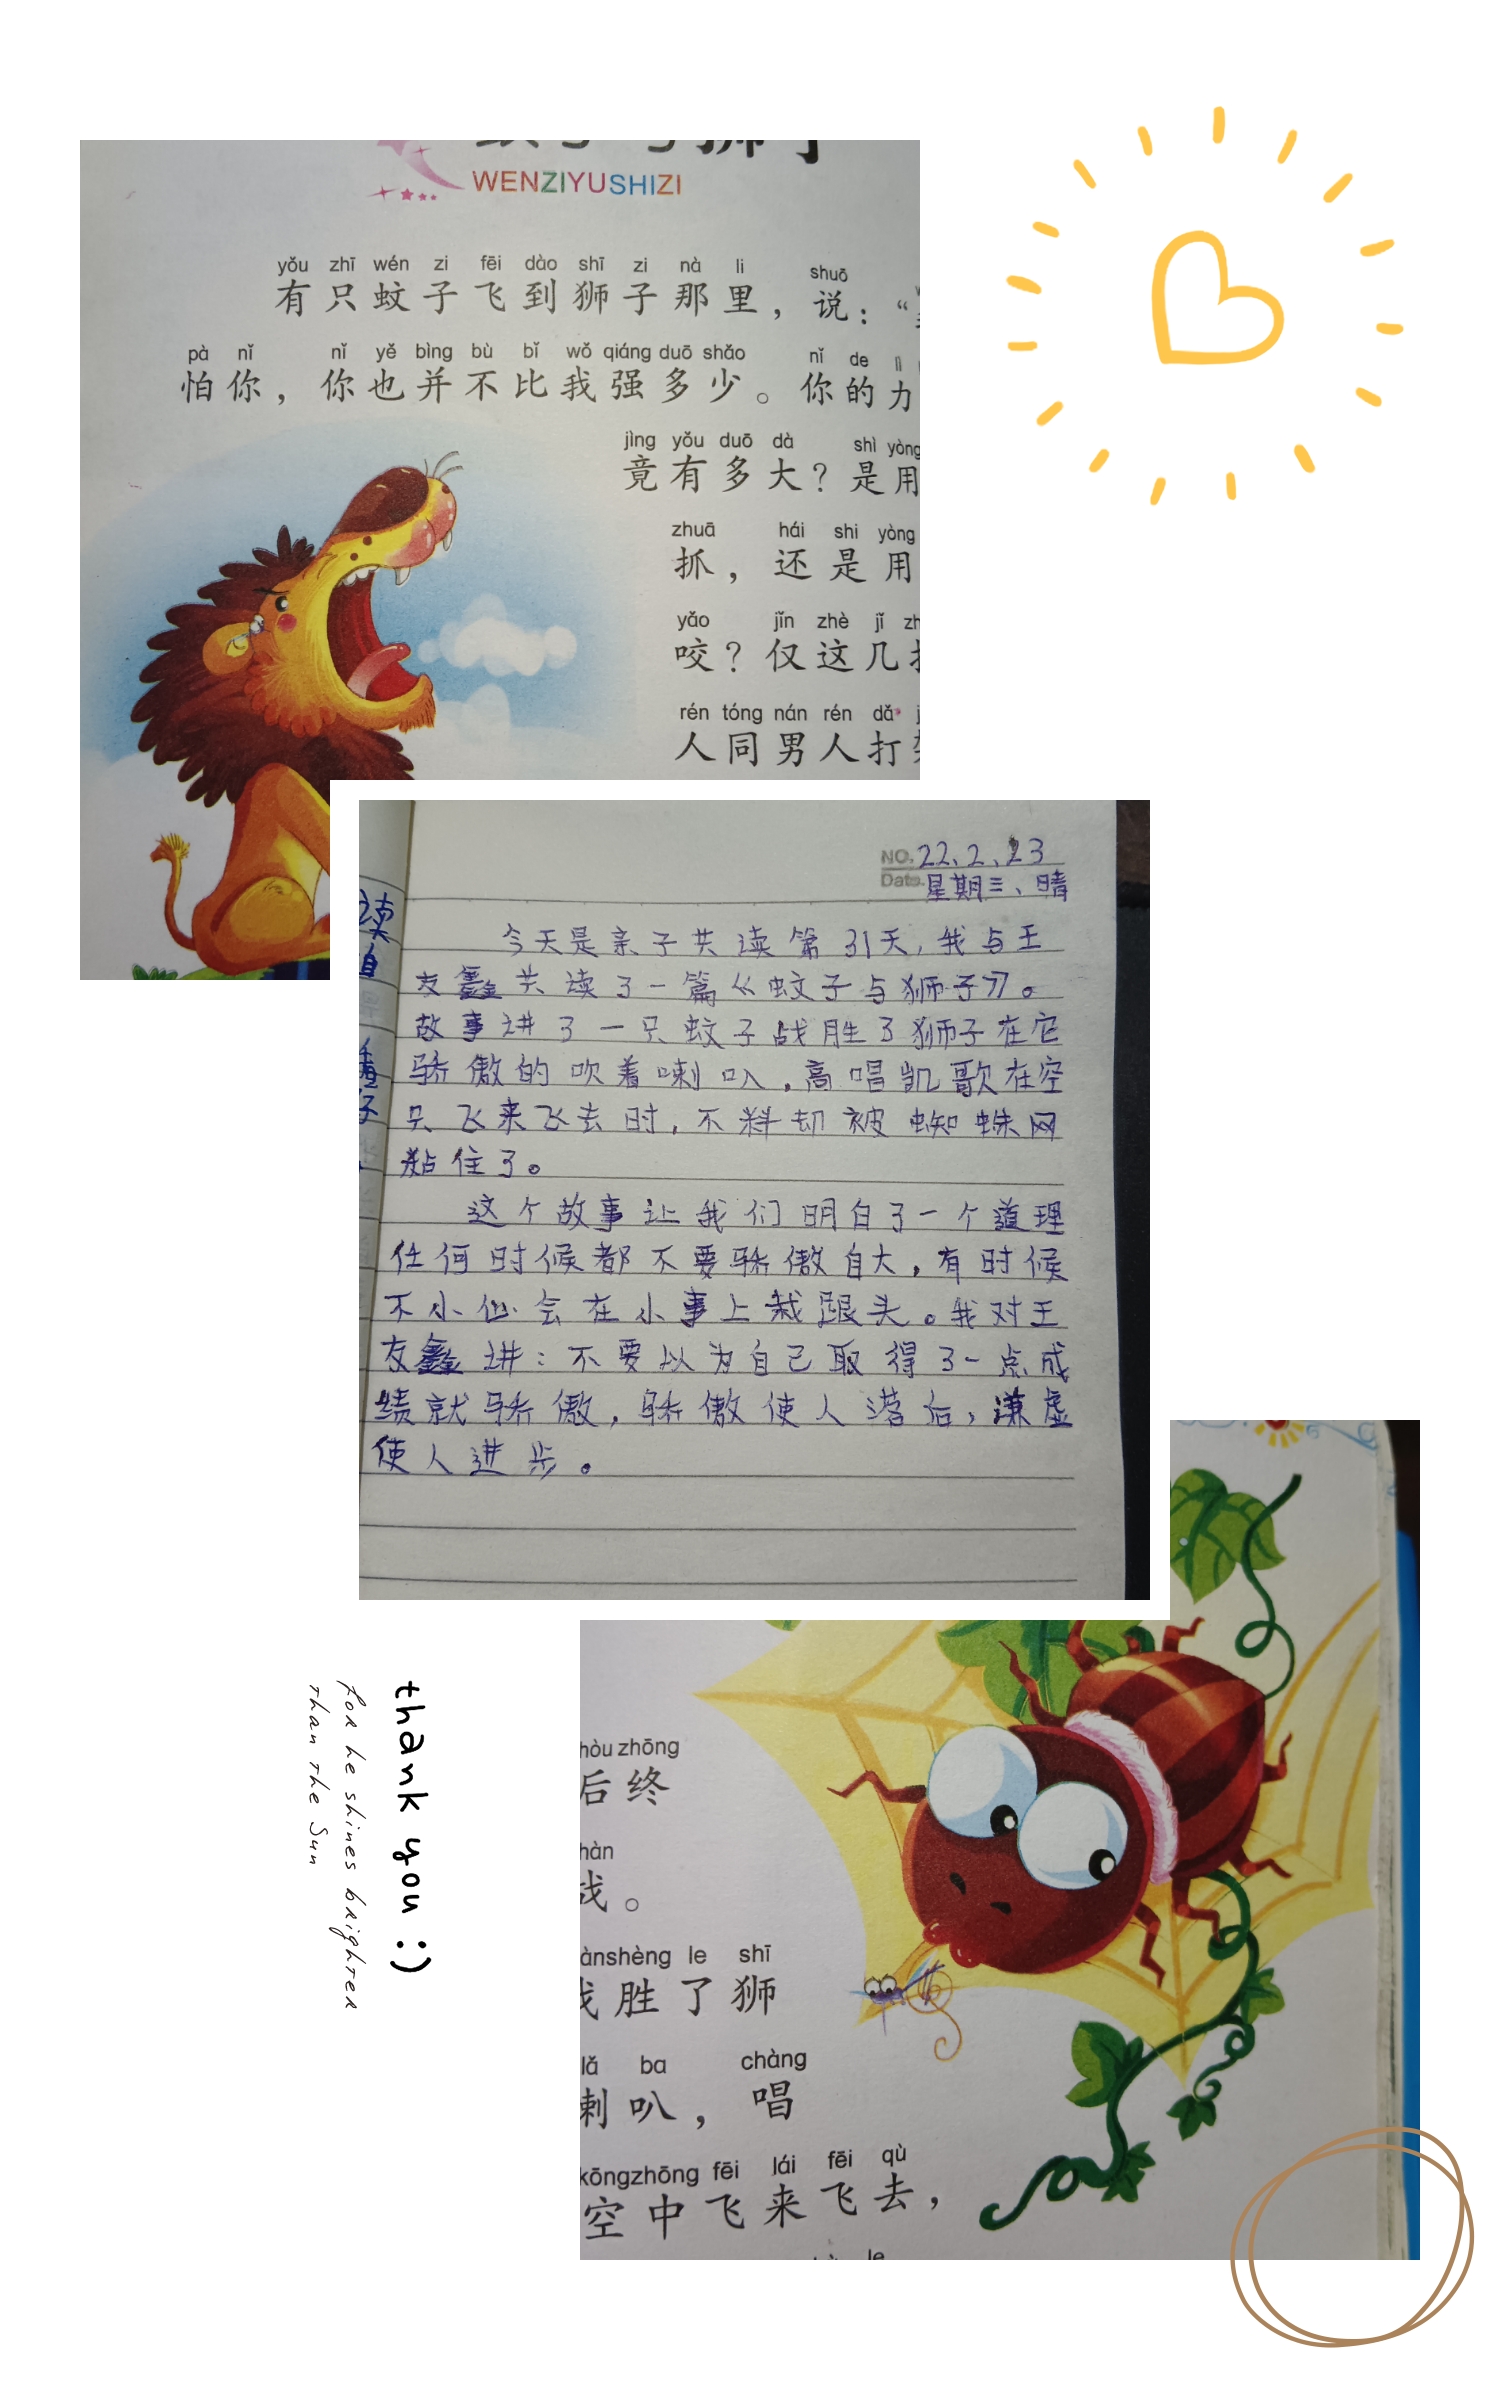 WENZIYUSHIZI
yǒu zhī wén zi fēi dào shī zi nà li shuō
有只蚊子飞到狮子那里，说：“
pà nǐ nǐ yě bìng bù bǐ wǒ qiáng duō shǎo nǐ de lì
怕你，你也并不比我强多少。你的力
jìng yǒu duō dà shì yòng
竟有多大？是用
zhuā hái shi yòng
抓，还是用
yǎo jǐn zhè jǐ
咬？仅这几
rén tóng nán rén dǎ
人同男人打
NO. 22.2.23
Date. 星期三、晴
今天是亲子共读第31天，我与王
友鑫共读了一篇《蚊子与狮子》。
故事讲了一只蚊子战胜了狮子在它
骄傲的吹着喇叭，高唱凯歌在空
只飞来飞去时，不料却被蜘蛛网
粘住了。
这个故事让我们明白了一个道理
任何时候都不要骄傲自大，有时候
不小心会在小事上栽跟头。我对王
友鑫讲：不要以为自己取得了一点成
绩就骄傲，骄傲使人落后，谦虚
使人进步。
thank you :)
for he shines brighter
than the Sun
hòu zhōng
后终
hàn
战。
ànshèng le shī
战胜了狮
lǎ ba chàng
喇叭，唱
kōngzhōng fēi lái fēi qù
空中飞来飞去，
le